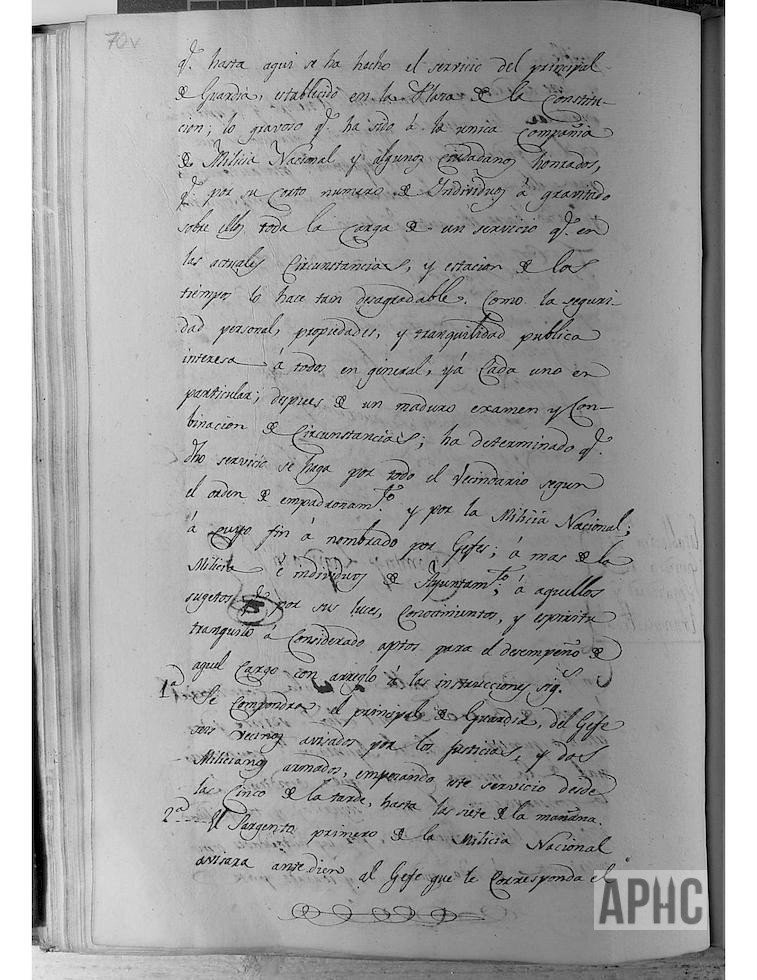 70v
q.e hasta aqui se ha hecho el servicio del principal
de Guardia, establecido en la Plaza de la Constitu-
cion; lo gravoso q.e ha sido á la unica Compañia
de Milicia Nacional y algunos Ciudadanos honrados,
q.e por su corto numero de Individuos á gravitado
sobre ellos toda la Carga de un servicio q.e en
las actuales Circunstancias, y estacion de los
tiempos lo hace tan desagradable. Como la seguri-
dad personal, propiedades, y tranquilidad publica
interesa á todos en general, y á Cada uno en
particular; despues de un maduro examen y Con-
binacion de Circunstancias; ha determinado q.e
dho servicio se haga por todo el Vecindario segun
el orden de empadronam.to y por la Milicia Nacional;
á cuyo fin á nombrado por Gefes; á mas de la
Milicia é individuos de Ayuntam.to; á aquellos
sugetos q.e por sus luces, Conocimientos, y espiritu
tranquilo á Considerado aptos para el desempeño de
aquel Cargo con arreglo á las instrucciones sig.s
1ª Se Compondra el principal de Guardia, del Gefe
seis Vecinos avisados por los Justicias, y dos
Milicianos armados, empezando este servicio desde
las Cinco de la tarde, hasta las siete de la mañana.
2ª El Sargento primero de la Milicia Nacional
avisara antedien al Gefe que le Corresponda el
APHC